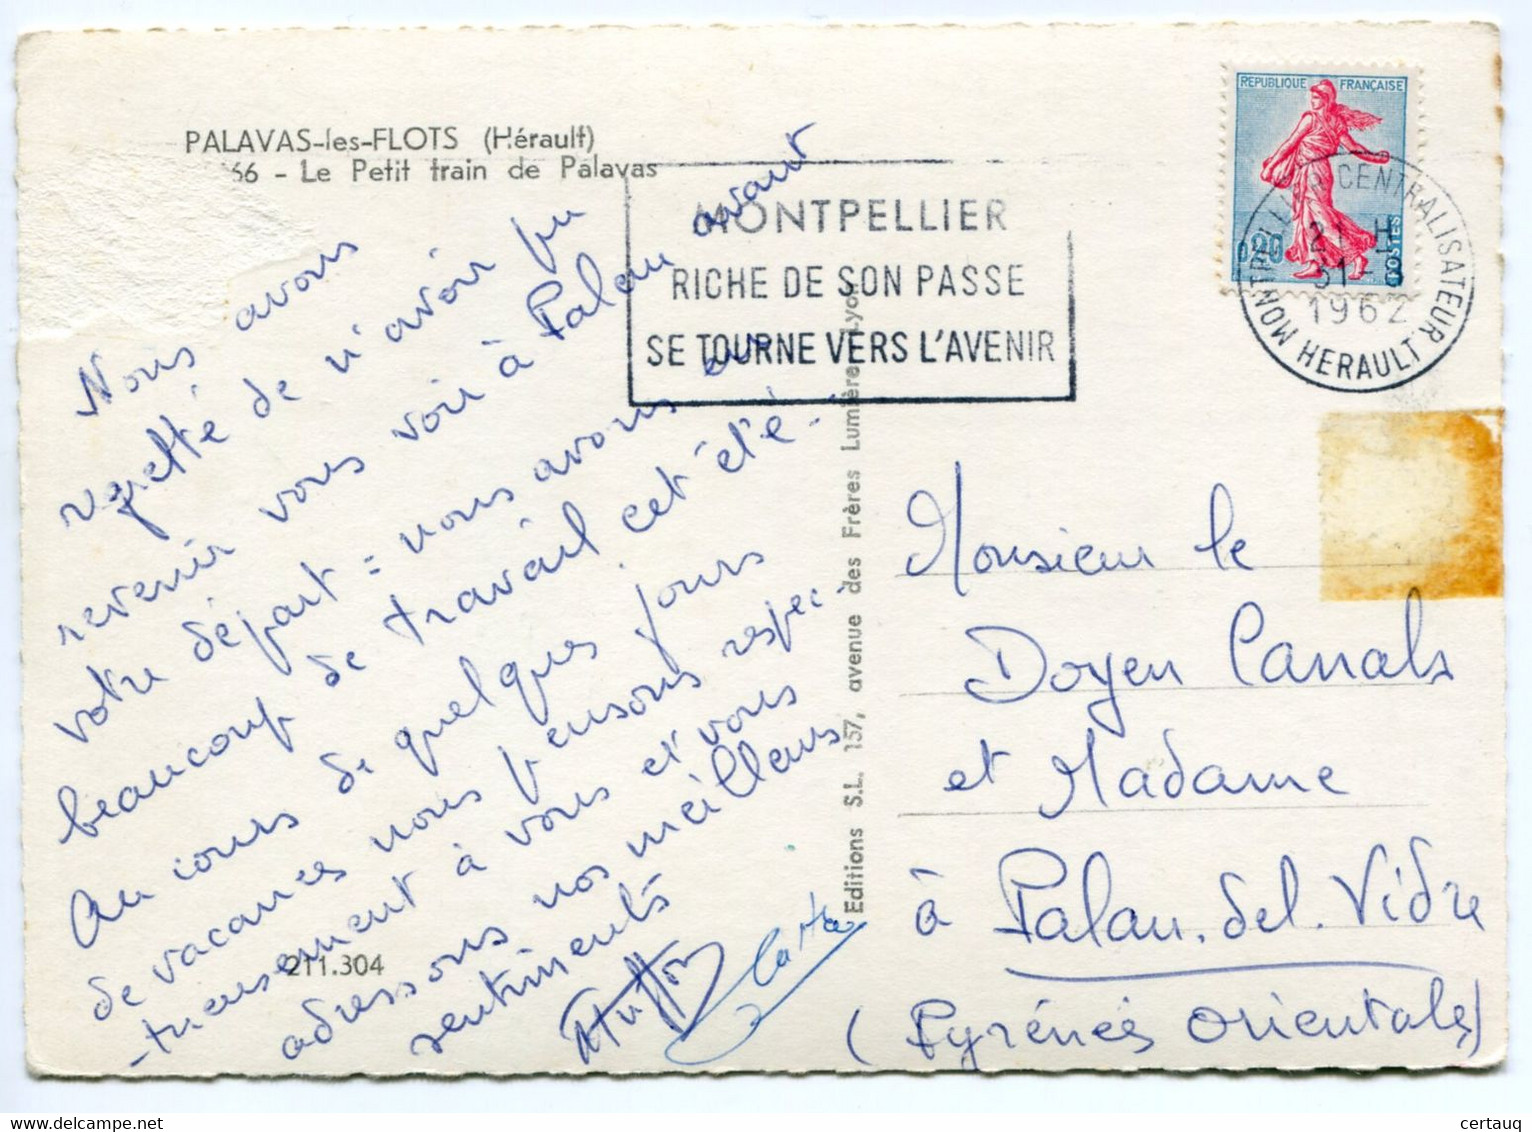 PALAVAS-les-FLOTS (Hérault)
66 - Le Petit train de Palavas
MONTPELLIER
RICHE DE SON PASSE
SE TOURNE VERS L'AVENIR
REPUBLIQUE FRANÇAISE
0,20
POSTES
MONTPELLIER CENTRALISATEUR
21 H
31 - 8
1962
HERAULT
Nous avons
regretté de n'avoir pu
revenir vous voir à Palau avant
votre départ : nous avons eu
beaucoup de travail cet été..
Au cours de quelques jours
de vacances nous pensons respec-
-tueusement à vous et vous
adressons nos meilleurs
sentiments
211.304
Editions S.L. 157, avenue des Frères Lumière - Lyon
Monsieur le
Doyen Canals
et Madame
à Palau. del. Vidre
(Pyrénées Orientales)
certauq